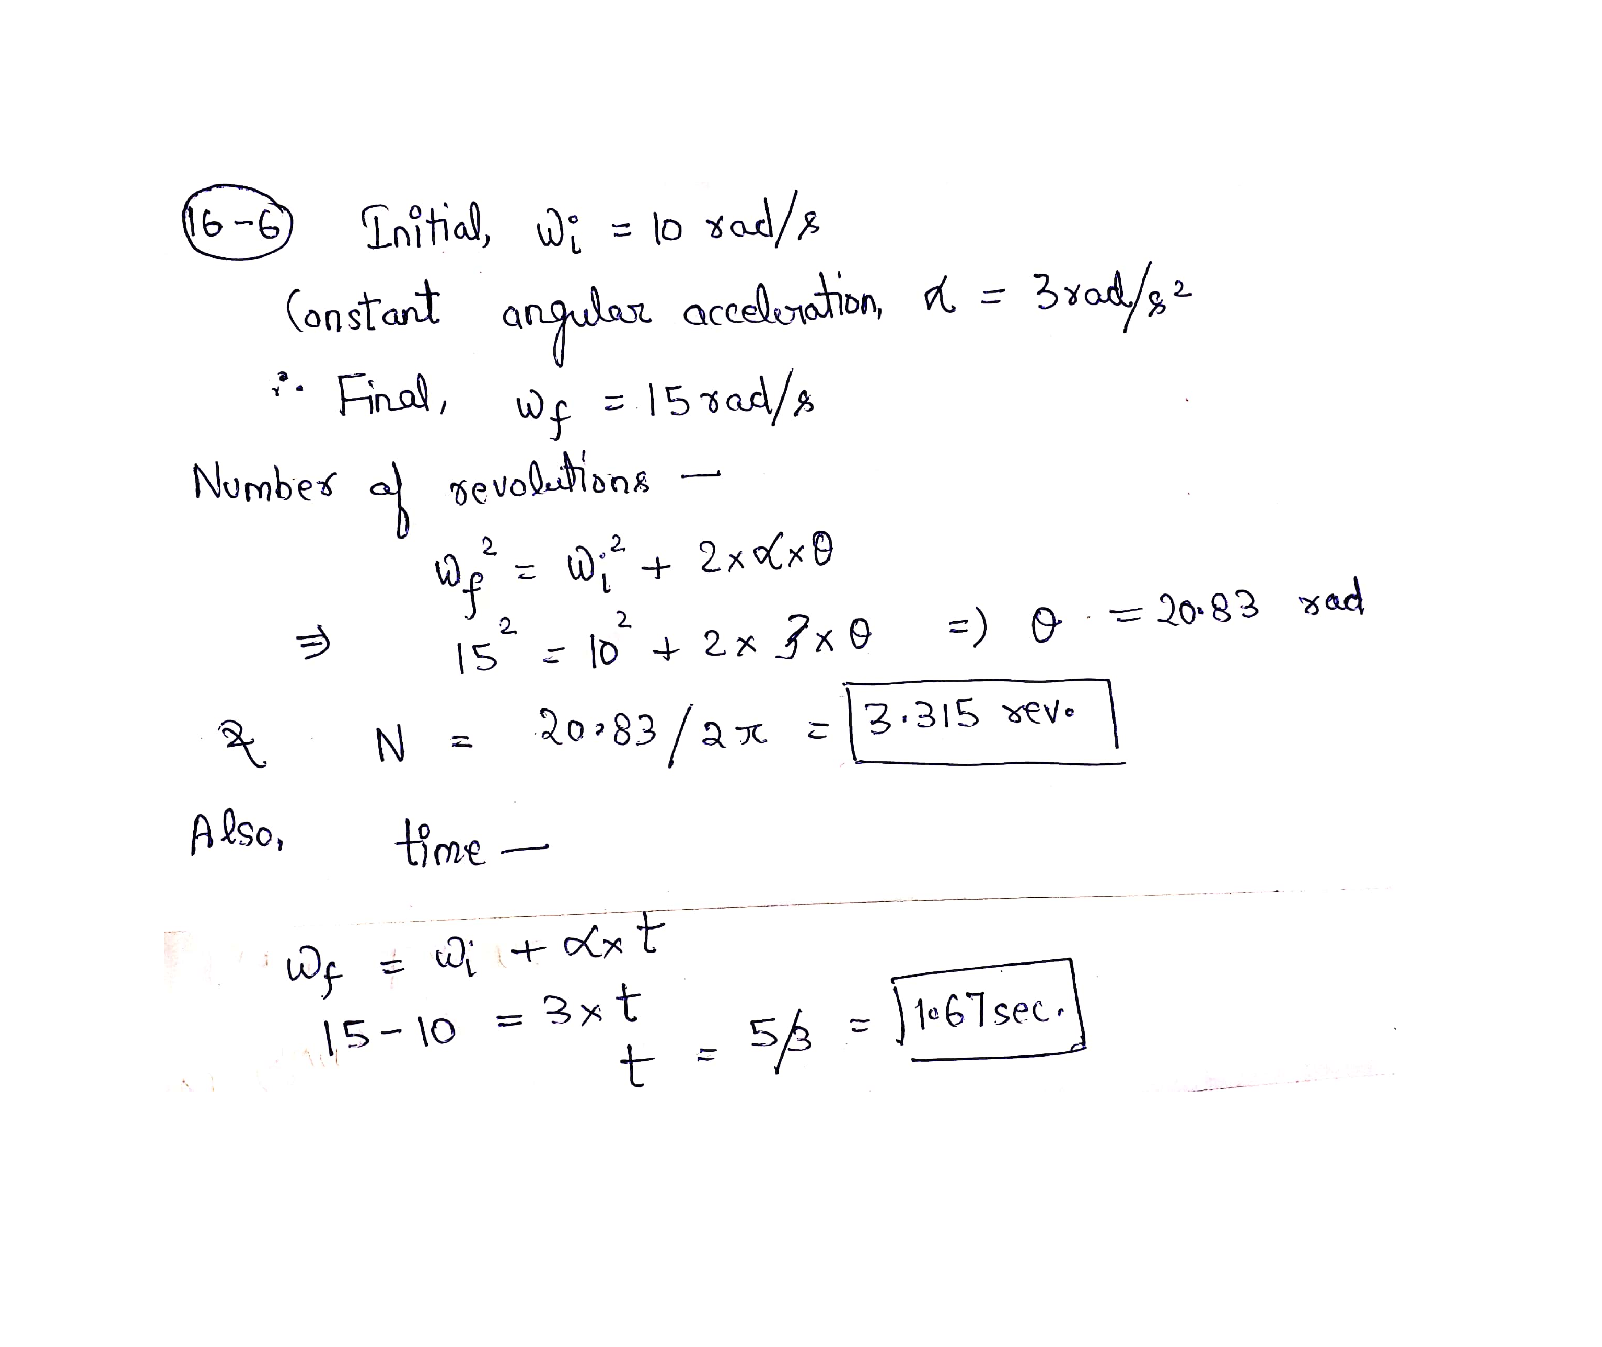 16-6 Initial, ωi = 10 rad/s
Constant angular acceleration, α = 3rad/s²
∴ Final, ωf = 15rad/s
Number of revolutions —
ωf² = ωi² + 2×α×θ
⇒ 15² = 10² + 2× 3×θ => θ = 20.83 rad
& N = 20.83/2π = 3.315 rev.
Also, time —
ωf = ωi + α×t
15-10 = 3×t
t = 5/3 = 1.67sec.